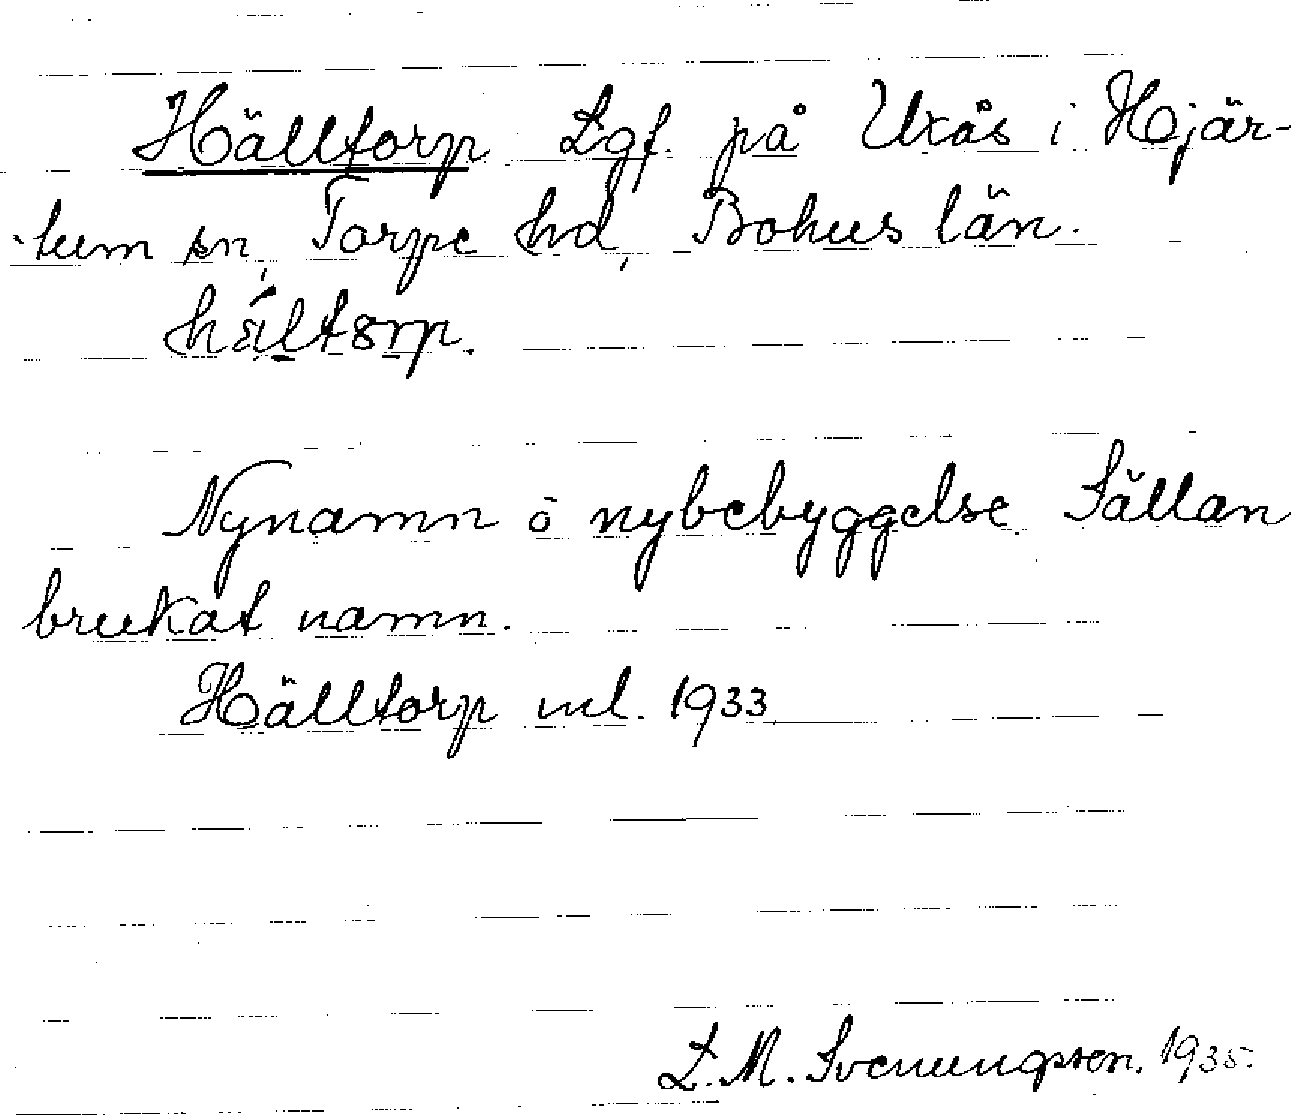 Hälltorp Lgf. på Uxås i Hjär-
tum sn, Torpe hd, Bohus län.
hältorp.
Nynamn å nybebyggelse. Sällan
brukat namn.
Hälltorp ml. 1933
L. M. Svenungsson. 1935.